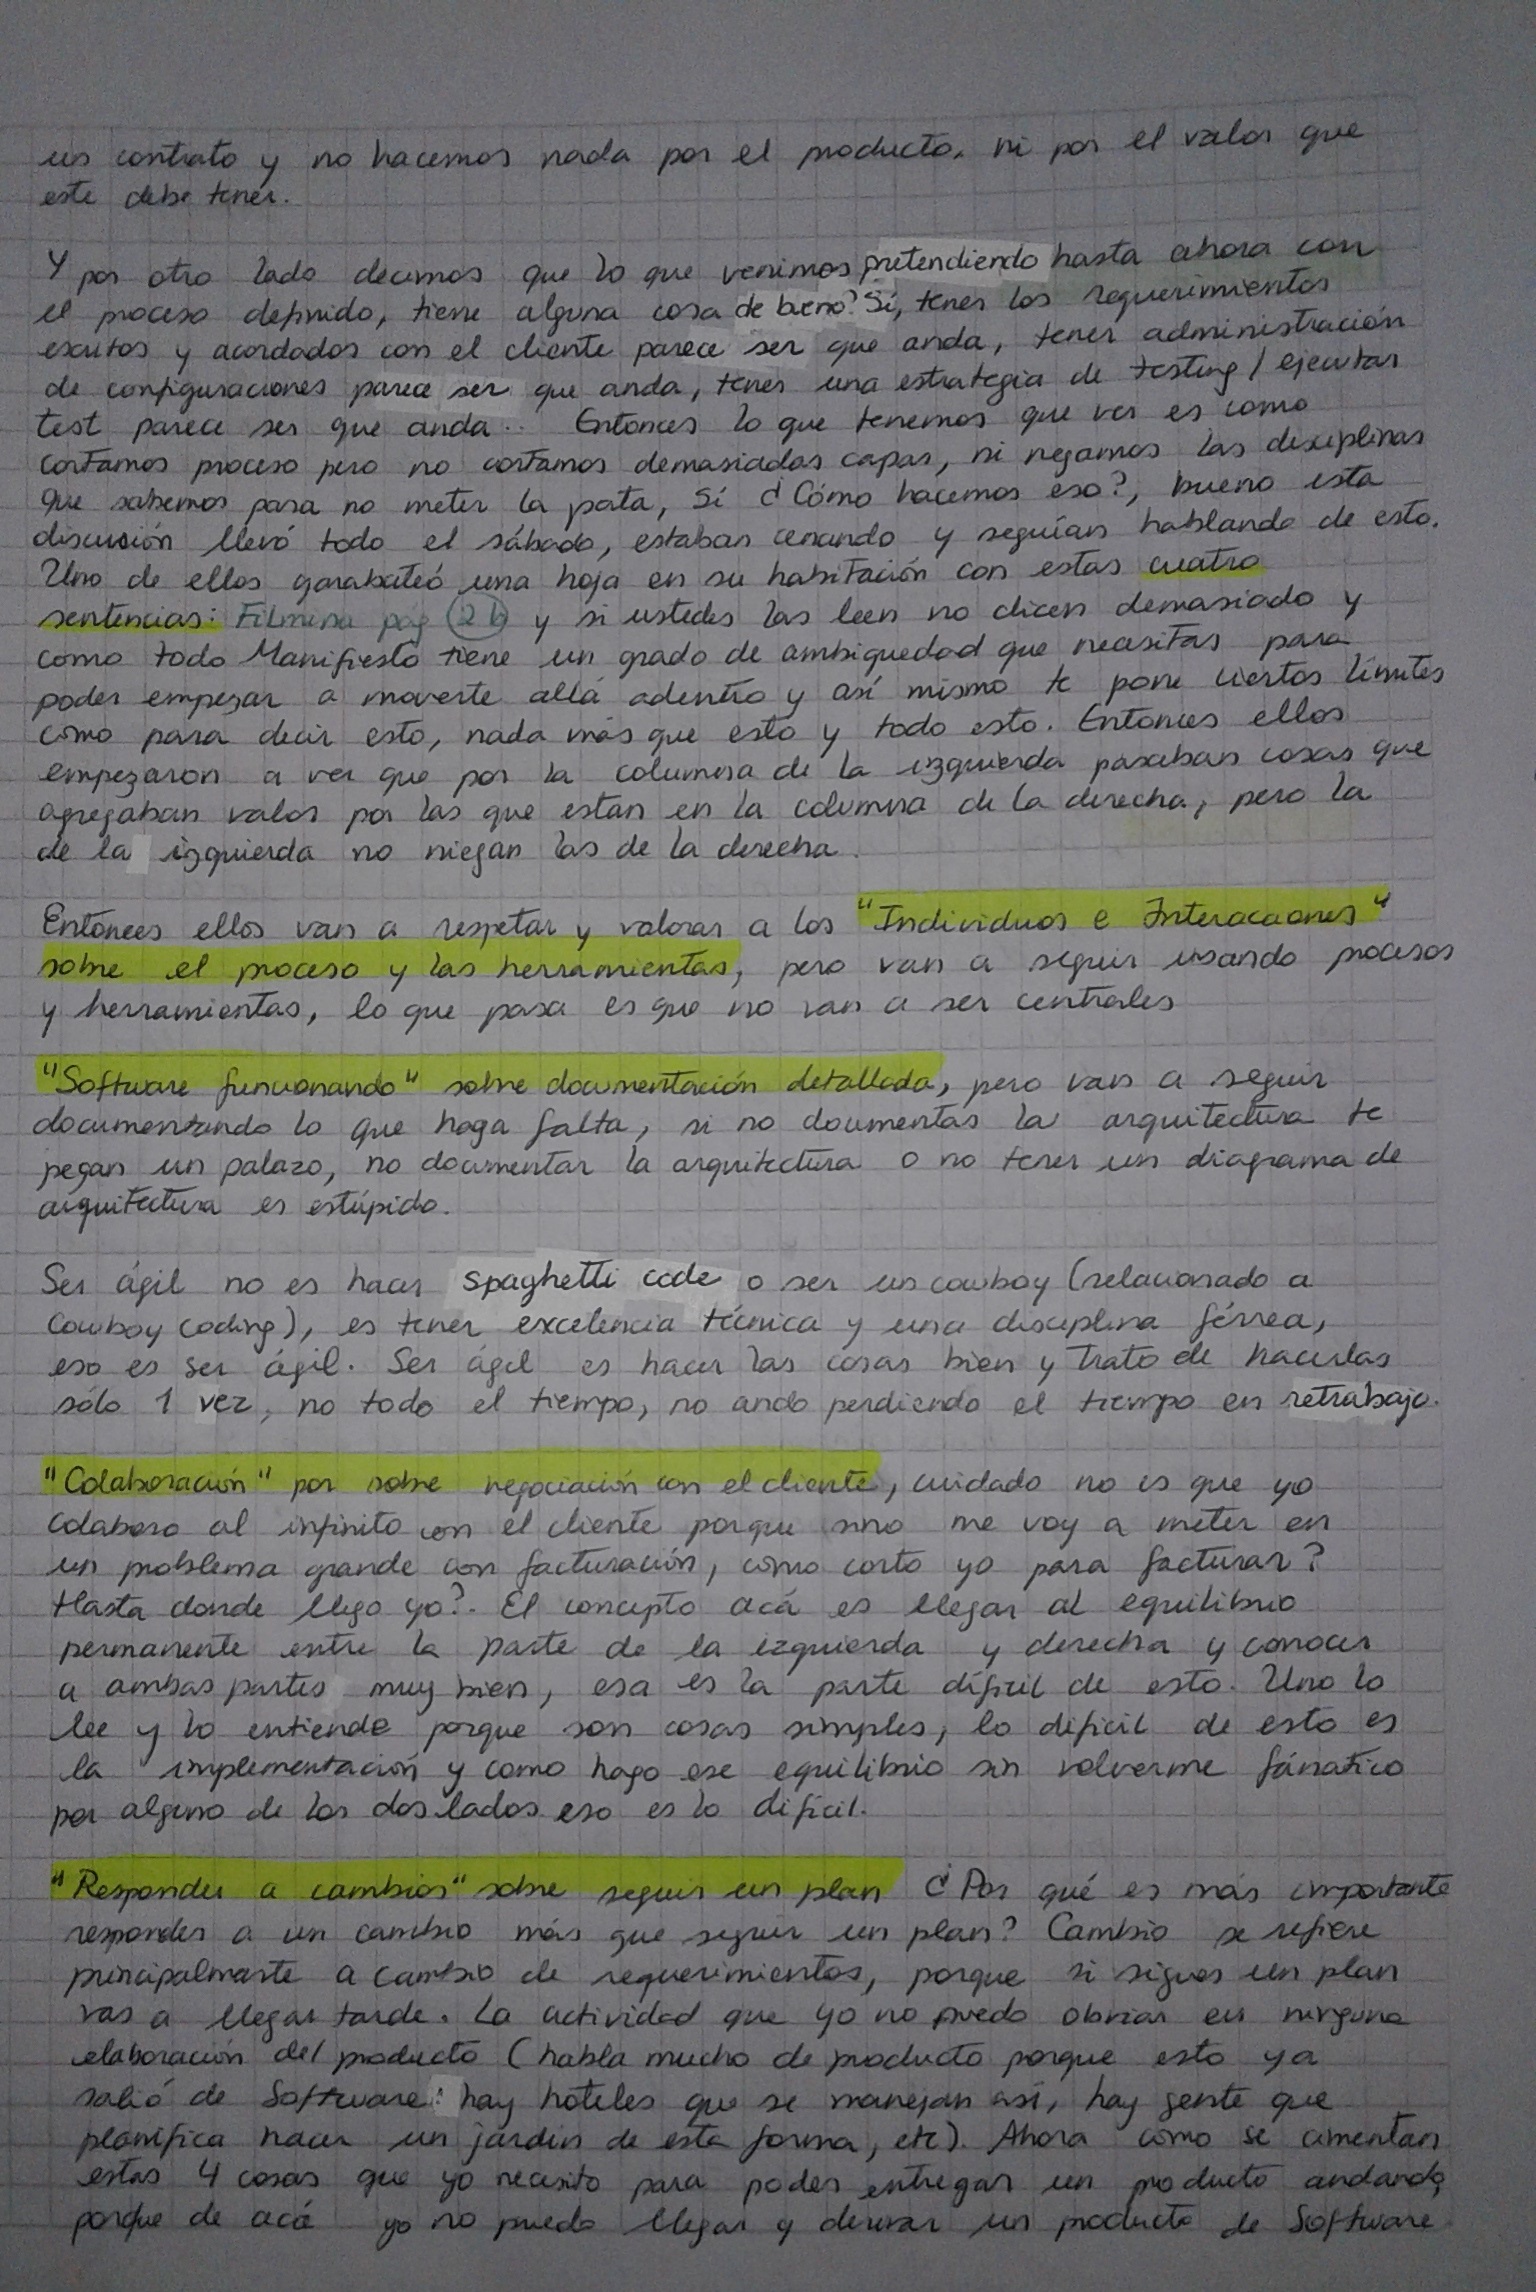 un contrato y no hacemos nada por el producto, ni por el valor que
este debe tener.
Y por otro lado decimos que lo que venimos pretendiendo hasta ahora con
el proceso definido, tiene alguna cosa de bueno? Sí, tener los requerimientos
escritos y acordados con el cliente parece ser que anda, tener administración
de configuraciones parece ser que anda, tener una estrategia de testing / ejecutar
test parece ser que anda.. Entonces lo que tenemos que ver es como
cortamos proceso pero no cortamos demasiadas capas, ni negamos las disciplinas
que sabemos para no meter la pata, Sí ¿Cómo hacemos eso?, bueno esta
discusión llevó todo el sábado, estaban cenando y seguían hablando de esto.
Uno de ellos garabateó una hoja en su habitación con estas cuatro
sentencias: Filmina pág 2b y si ustedes las leen no dicen demasiado y
como todo Manifiesto tiene un grado de ambiguedad que necesitas para
poder empezar a moverte allá adentro y así mismo te pone ciertos límites
como para decir esto, nada más que esto y todo esto. Entonces ellos
empezaron a ver que por la columna de la izquierda pasaban cosas que
agregaban valor por las que estan en la columna de la derecha, pero la
de la izquierda no niegan las de la derecha.
Entonces ellos van a respetar y valorar a los "Individuos e Interacciones"
sobre el proceso y las herramientas, pero van a seguir usando procesos
y herramientas, lo que pasa es que no van a ser centrales
"Software funcionando" sobre documentación detallada, pero van a seguir
documentando lo que haga falta, si no documentas la arquitectura te
pegan un palazo, no documentar la arquitectura o no tener un diagrama de
arquitectura es estúpido.
Ser ágil no es hacer spaghetti code o ser un cowboy (relacionado a
cowboy coding), es tener excelencia técnica y una disciplina férrea,
eso es ser ágil. Ser ágil es hacer las cosas bien y trato de hacerlas
sólo 1 vez, no todo el tiempo, no ando perdiendo el tiempo en retrabajo.
"Colaboración" por sobre negociación con el cliente, cuidado no es que yo
colaboro al infinito con el cliente porque sino me voy a meter en
un problema grande con facturación, cómo corto yo para facturar?
Hasta donde llego yo?. El concepto acá es llegar al equilibrio
permanente entre la parte de la izquierda y derecha y conocer
a ambas partes muy bien, esa es la parte difícil de esto. Uno lo
lee y lo entiende porque son cosas simples, lo dificil de esto es
la implementación y como hago ese equilibrio sin volverme fánatico
por alguno de los dos lados eso es lo difícil.
"Responder a cambios" sobre seguir un plan ¿Por qué es más importante
responder a un cambio más que seguir un plan? Cambio se refiere
principalmente a cambio de requerimientos, porque si sigues un plan
vas a llegar tarde. La actividad que yo no puedo obviar en ninguna
elaboración del producto (habla mucho de producto porque esto ya
salió de Software: hay hoteles que se manejan así, hay gente que
planifica hacer un jardín de esta forma, etc). Ahora cómo se cimentan
estas 4 cosas que yo necesito para poder entregar un producto andando,
porque de acá yo no puedo llegar y derivar un producto de Software